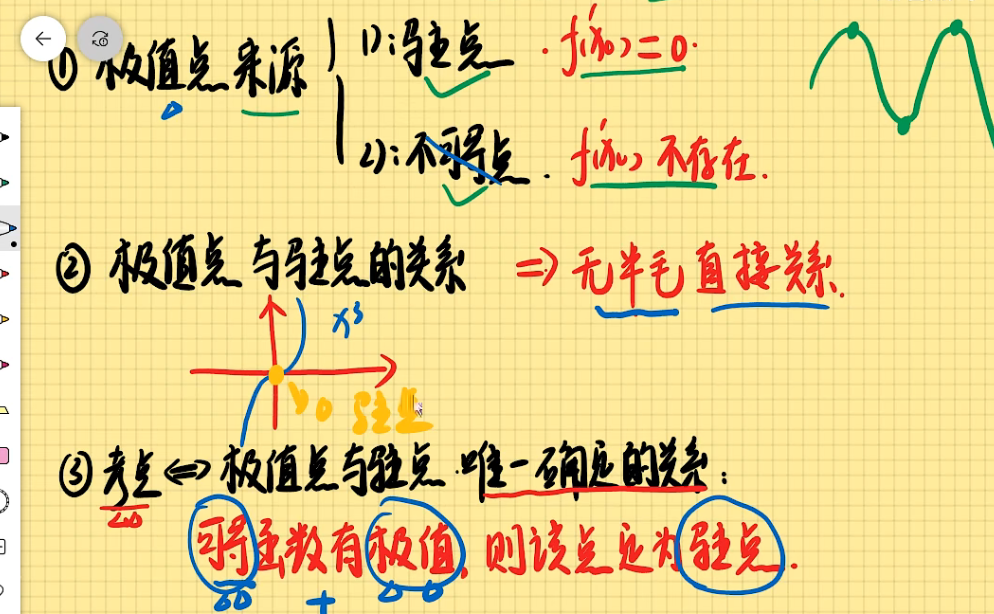 ① 极值点来源 1):驻点 · f′(x₀)=0·
2):不可导点. f′(x₀)不存在.
② 极值点与驻点的关系 ⇒ 无半毛直接关系.
x³
0 驻点
③ 考点⇔极值点与驻点·唯一确定的关系:
可导函数有极值,则该点定为驻点.
+